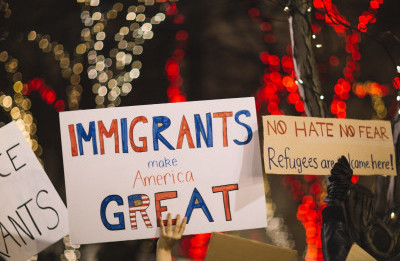 CE
ANTS
IMMIGRANTS
make
America
GREAT
NO HATE NO FEAR
Refugees are welcome here!